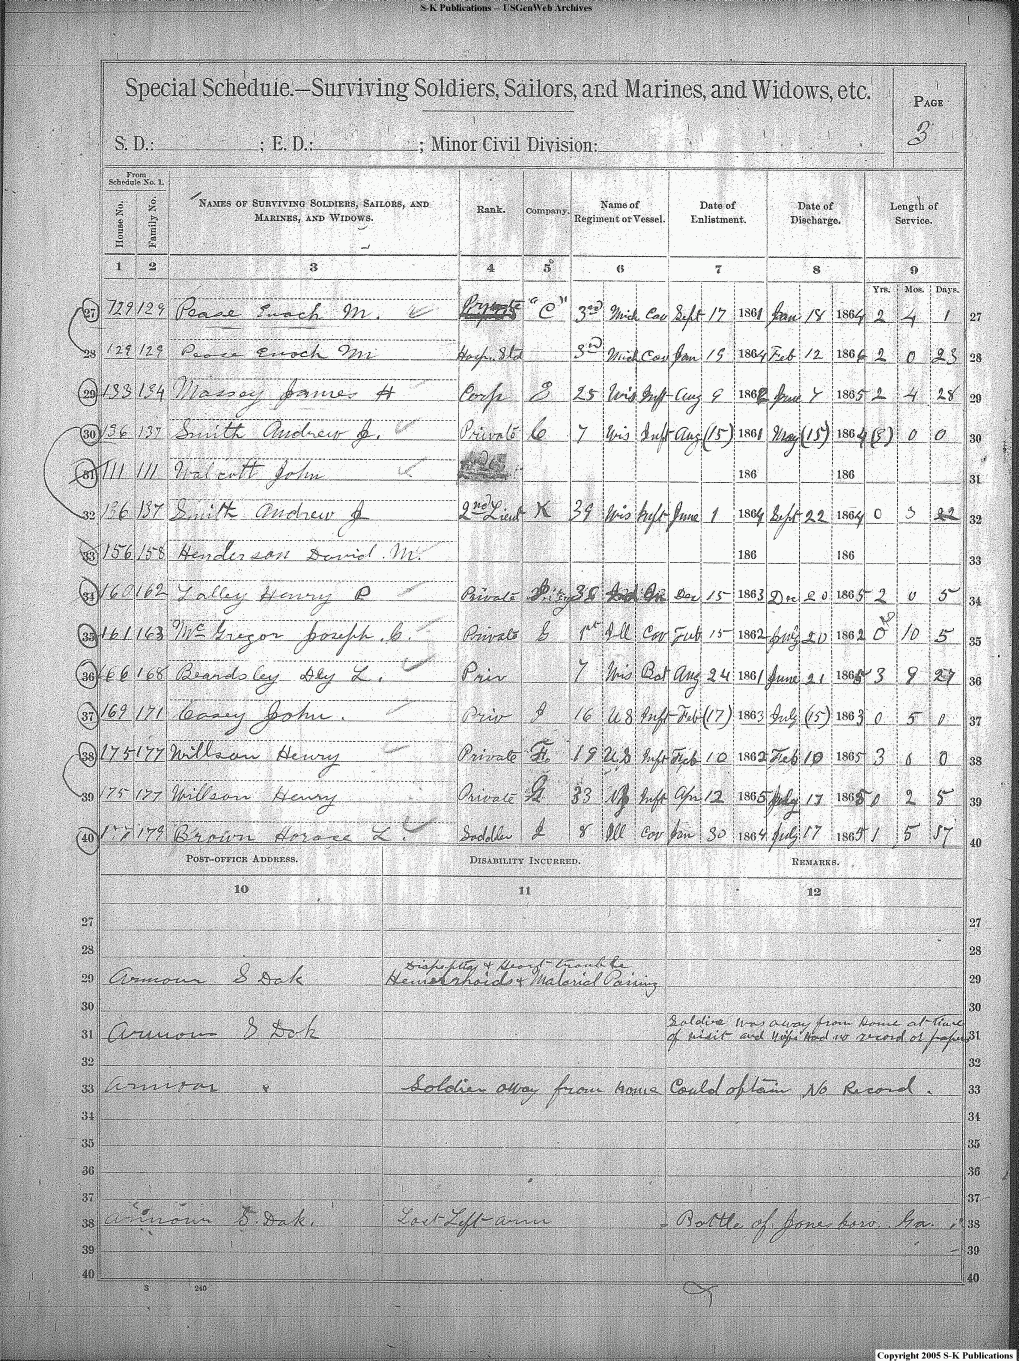 S-K Publications -- USGenWeb Archives
Special Schedule.—Surviving Soldiers, Sailors, and Marines, and Widows, etc.
PAGE
3
S. D.: ; E. D.: ; Minor Civil Division:
From Schedule No. 1.
House No. Family No. NAMES OF SURVIVING SOLDIERS, SAILORS, AND MARINES, AND WIDOWS. Rank. Company. Name of Regiment or Vessel. Date of Enlistment. Date of Discharge. Length of Service.
1 2 3 4 5 6 7 8 9
Yrs. Mos. Days.
27 129 129 Pease Enoch M. "C" 3rd Mich Cav Sept 17 1861 Jan 18 1864 2 4 1 27
28 129 129 Pease Enoch M Hosp. Std 3rd Mich Cav Jan 19 1864 Feb 12 1866 2 0 23 28
29 133 134 Massey James H Corp E 25 Wis Inft Aug 9 1862 June 7 1865 2 4 28 29
30 136 137 Smith Andrew J. Private C 7 Wis Inft Aug (15) 1861 May (15) 1864 0 0 30
31 111 111 Walcott John 186 186 31
32 136 137 Smith Andrew J 2nd Lieut K 39 Wis Inft June 1 1864 Sept 22 1864 0 3 22 32
33 156 158 Henderson David M. 186 186 33
34 160 162 Lalley Henry P Private 38 Dec 15 1863 Dec 20 1865 2 0 5 34
35 161 163 McGregor Joseph C. Private 1st Ill Cav Feb 15 1862 20 1862 0 10 5 35
36 166 168 Beardsley Dly L. Priv 7 Wis Bat Aug 24 1861 June 21 1865 3 9 27 36
37 169 171 Casey John. Priv I 16 U S Inft Feb (17) 1863 July (15) 1863 0 5 0 37
38 175 177 Willson Henry Private 19 U.S Inft Feb 10 1862 Feb 10 1865 3 0 0 38
39 175 177 Willson Henry Private G 33 NJ Inft Apr 12 1865 July 17 1865 0 2 5 39
40 177 179 Brown Horace L. Saddler L 8 Ill Cav Jan 30 1864 July 17 1865 1 5 17 40
POST-OFFICE ADDRESS. DISABILITY INCURRED. REMARKS.
10 11 12
27 27
28 28
Dispeptia & Heart trouble
29 Armour S Dak Hemerrhoids & Malarial Poising 29
30 30
Soldier was away from home at time
31 Armour S Dak of visit and wife had no record or papers 31
32 32
33 Armour " Soldier away from home Could optain No Record. 33
34 34
35 35
36 36
37 37
38 Armour S. Dak. Lost Left arm Battle of Jonesboro Ga. 38
39 39
40 40
3 240
Copyright 2005 S-K Publications